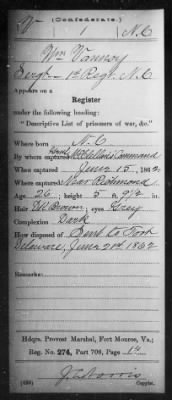 (Confederate.)
V 1 N.C.
Wm Vannoy
Sergt - 1st Regt. N.C.
Appears on a
Register
under the following heading:
"Descriptive List of prisoners of war, &c."
Where born N.C.
By whom captured Genl McClellan's Command
When captured June 15, 1862
Where captured Near Richmond
Age 26; height 5 ft. 9½ in.
Hair D. Brown; eyes Grey
Complexion Dark
How disposed of Sent to Fort
Delaware, June 21st 1862
Remarks:
Hdqrs. Provost Marshal, Fort Monroe, Va.;
Reg. No. 274, Part 706, Page 1st
Copyist.